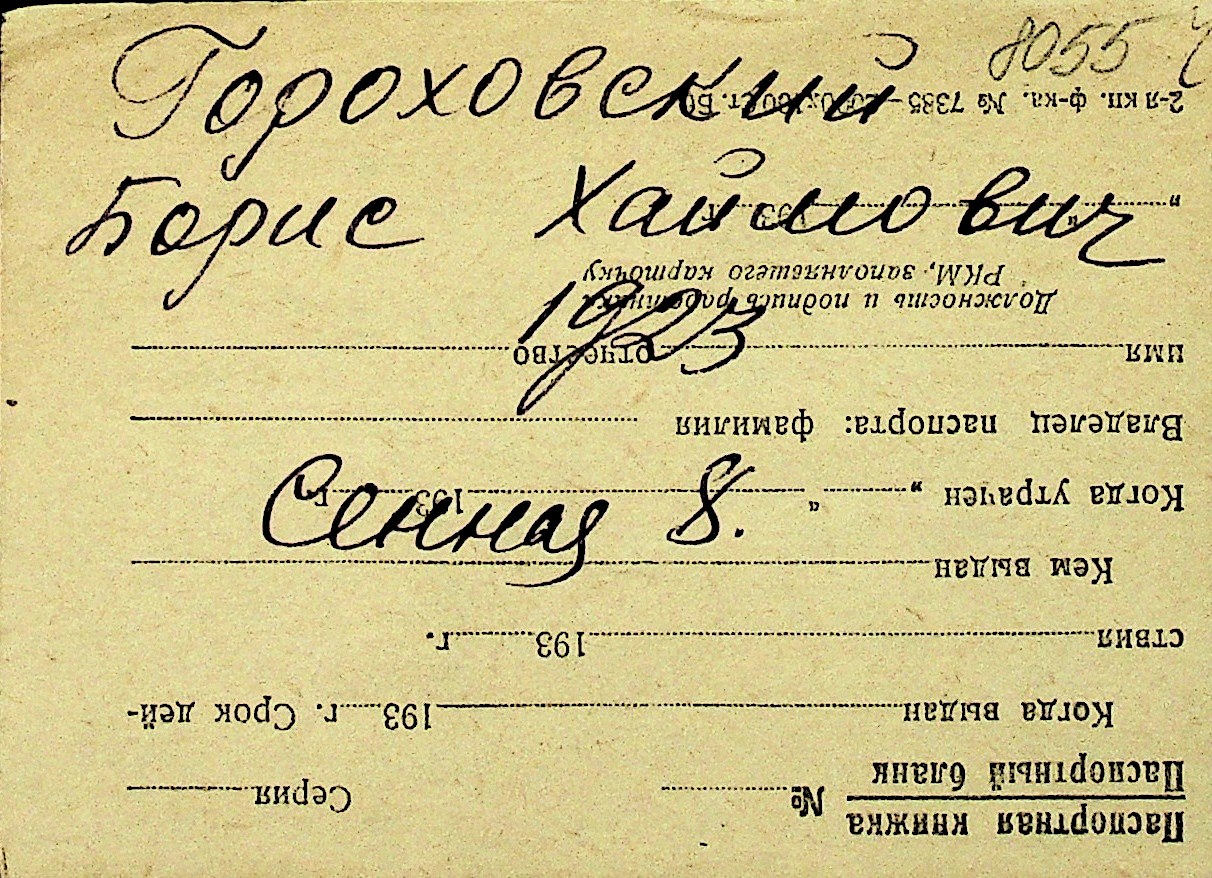 8055
Гороховский
Борис Хаймович
1923
Сенная 8.
Паспортная книжка
Паспортный бланк
№ Серия
Когда выдан 193 г. Срок дей-
ствия 193 г.
Кем выдан
Когда утрачен „ “ 193 г.
Владелец паспорта: фамилия
имя отчество
Должность и подпись работника
РКМ, заполнявшего карточку
„ “ 193 г.
2-я кп. ф-ка. № 7385